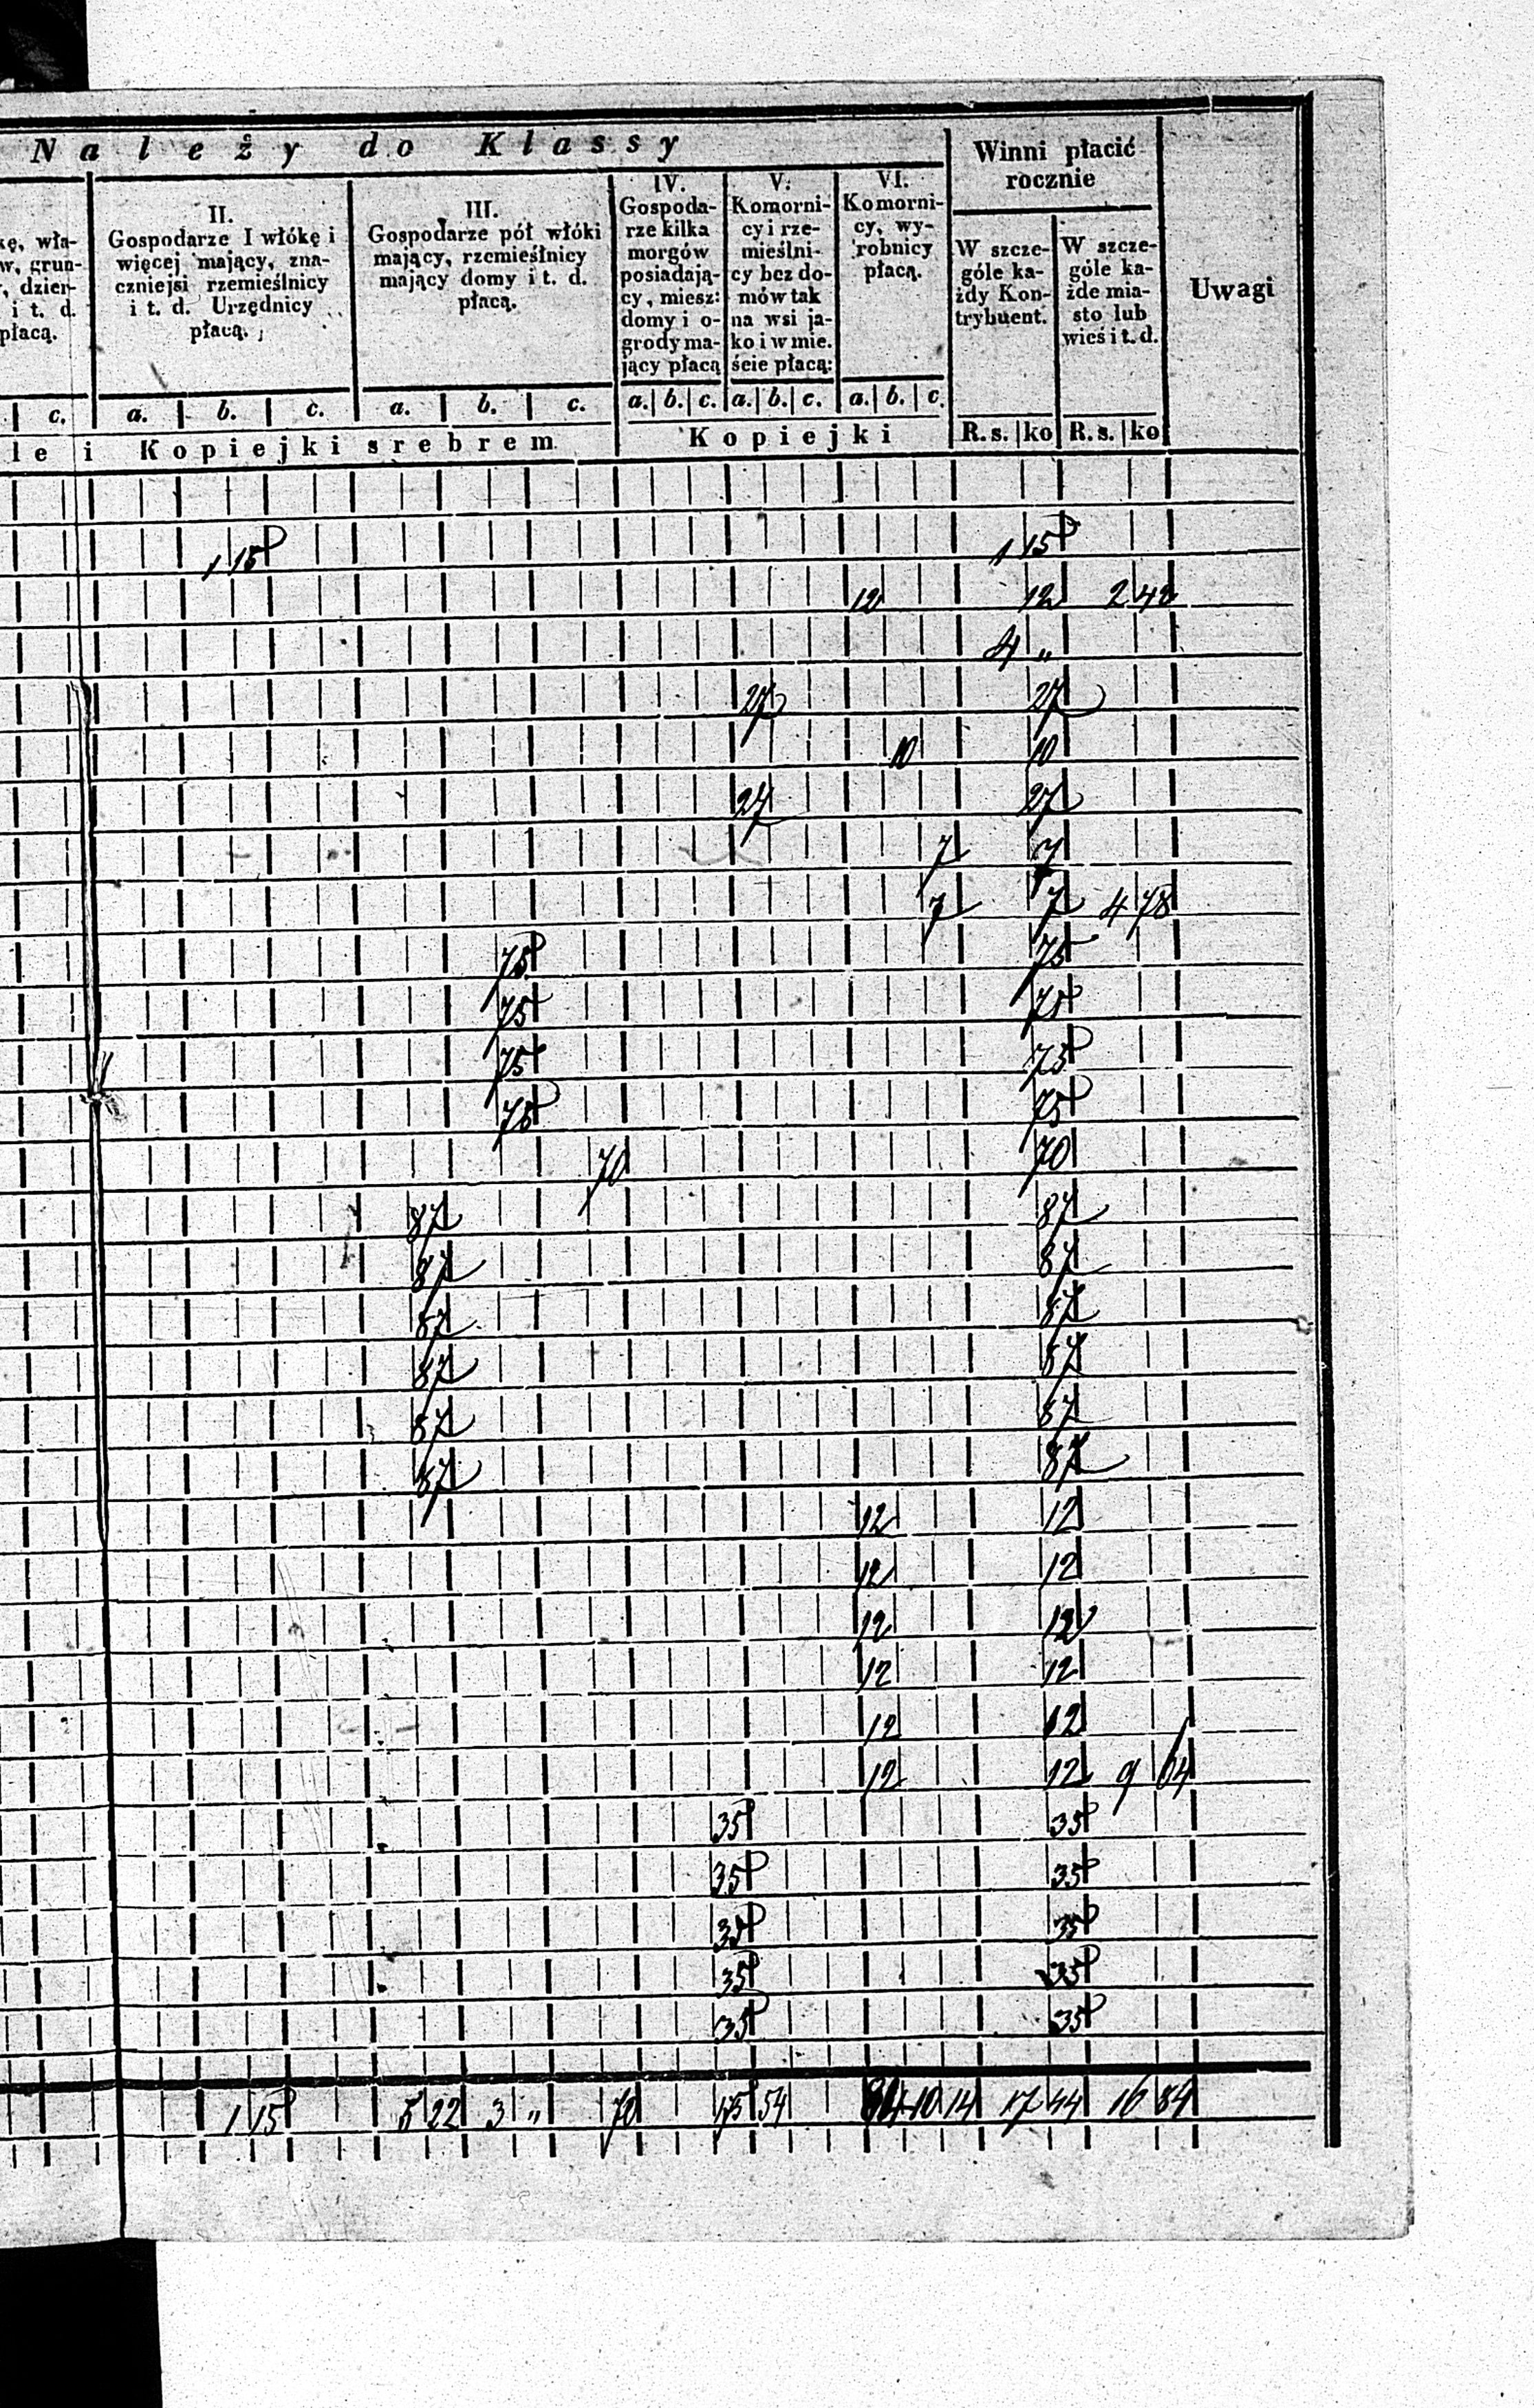 Należy do Klassy
Winni płacić
rocznie
Uwagi
kę, wła-
w, grun-
, dzier-
i t. d.
płacą.
II.
Gospodarze I włókę i
więcej mający, zna-
czniejsi rzemieślnicy
i t. d. Urzędnicy
płacą.
III.
Gospodarze pół włóki
mający, rzemieślnicy
mający domy i t. d.
płacą.
IV.
Gospoda-
rze kilka
morgów
posiadają-
cy, miesz:
domy i o-
grody ma-
jący płacą
V.
Komorni-
cy i rze-
mieślni-
cy bez do-
mów tak
na wsi ja-
ko i w mie.
ście płacą:
VI.
Komorni-
cy, wy-
robnicy
płacą.
W szcze-
góle ka-
żdy Kon-
trybuent.
W szcze-
góle ka-
żde mia-
sto lub
wieś i t. d.
c. a. b. c. a. b. c. a. b. c. a. b. c. a. b. c.
le i Kopiejki srebrem Kopiejki R. s. ko R. s. ko
1 15 1 15
12 12 2 42
4 "
27 27
10 10
27 27
7 7
7 7 4 78
75 75
75 75
75 75
75 75
70 70
87 87
87 87
87 87
87 87
87 87
87 87
12 12
12 12
12 12
12 12
12 12
12 12 9 64
35 35
35 35
35 35
35 35
35 35
1 15 5 22 3 " 70 175 54 84 10 14 17 44 16 84